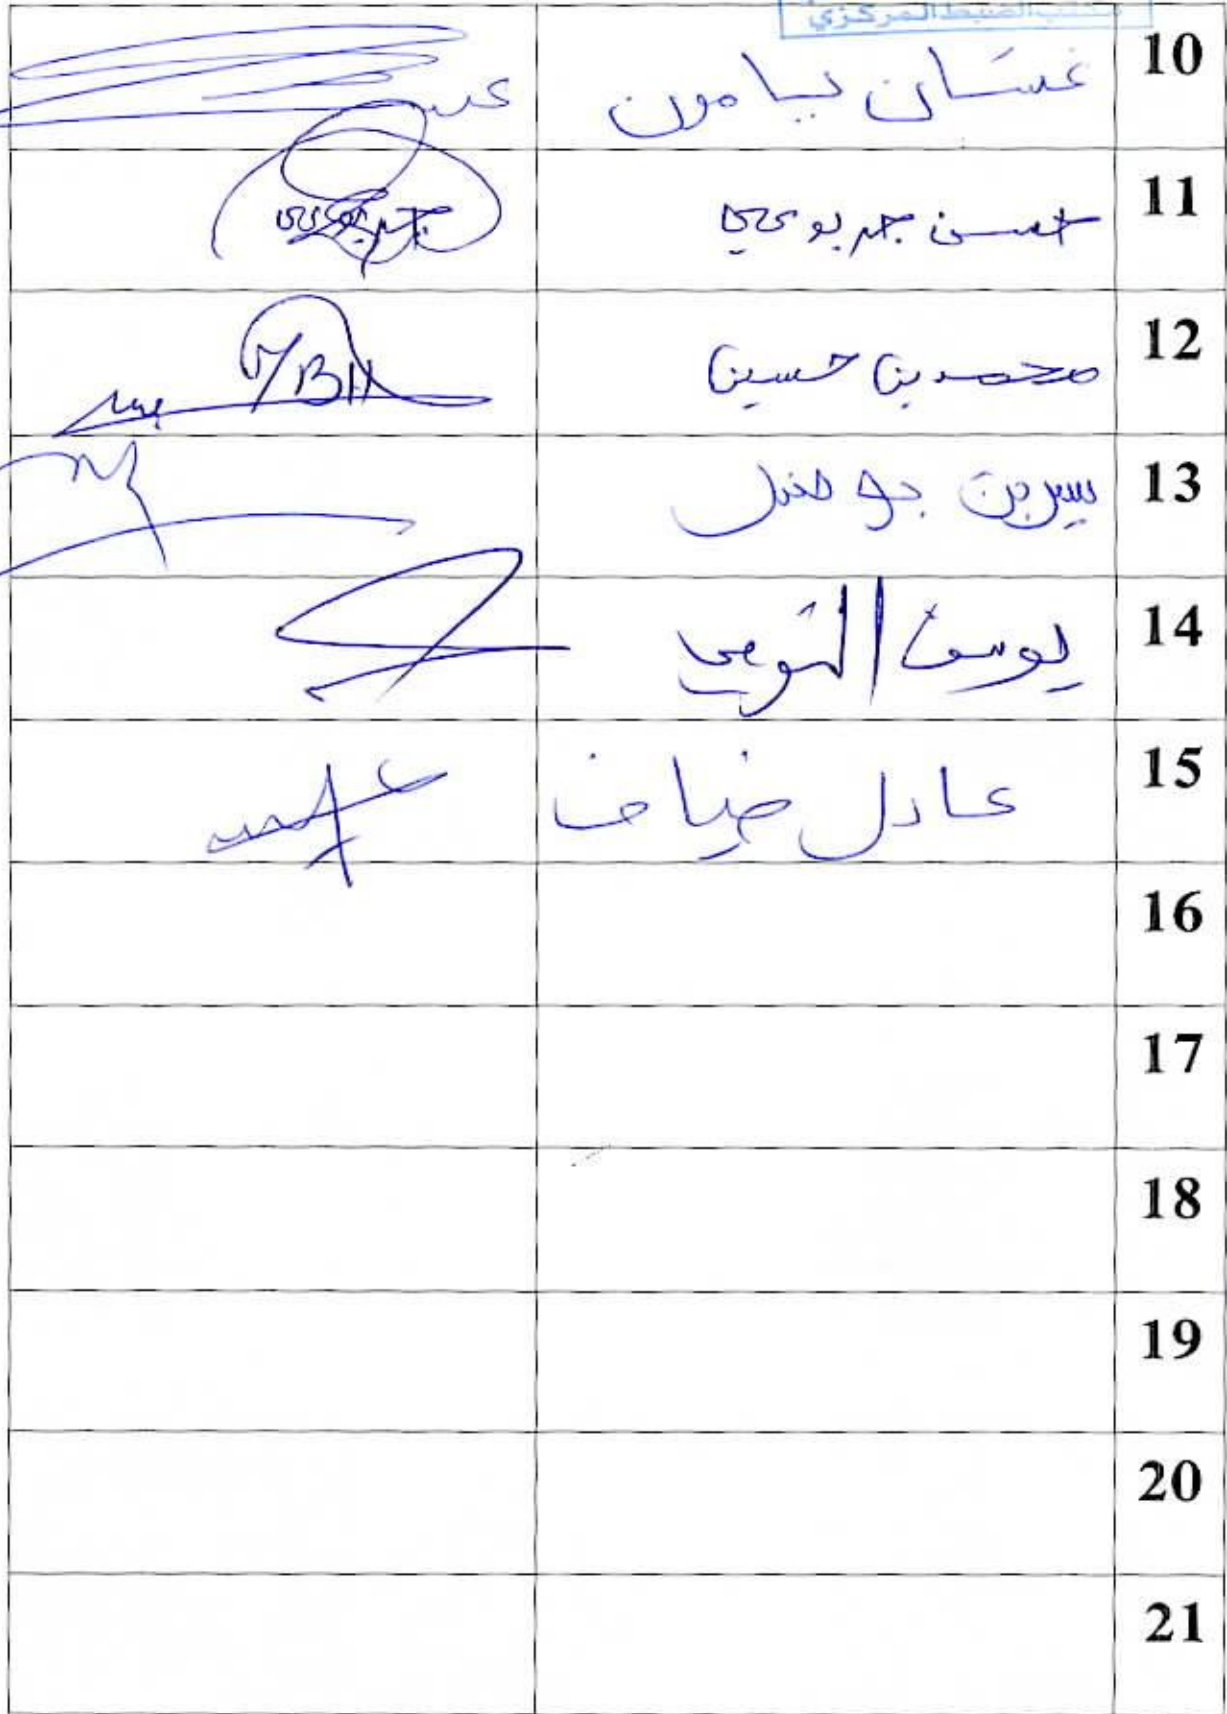 مكتب الضبط المركزي
10 غسان يامون
11 حسن جربوعي
12 محمد بن حسين
13 سيرين بوصندل
14 يوسف التومي
15 عادل ضياف
16
17
18
19
20
21